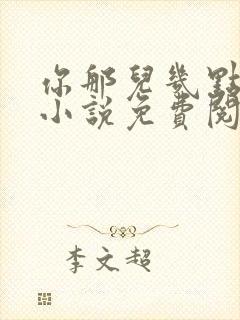 你那兒幾點
小說免費閱
李文超